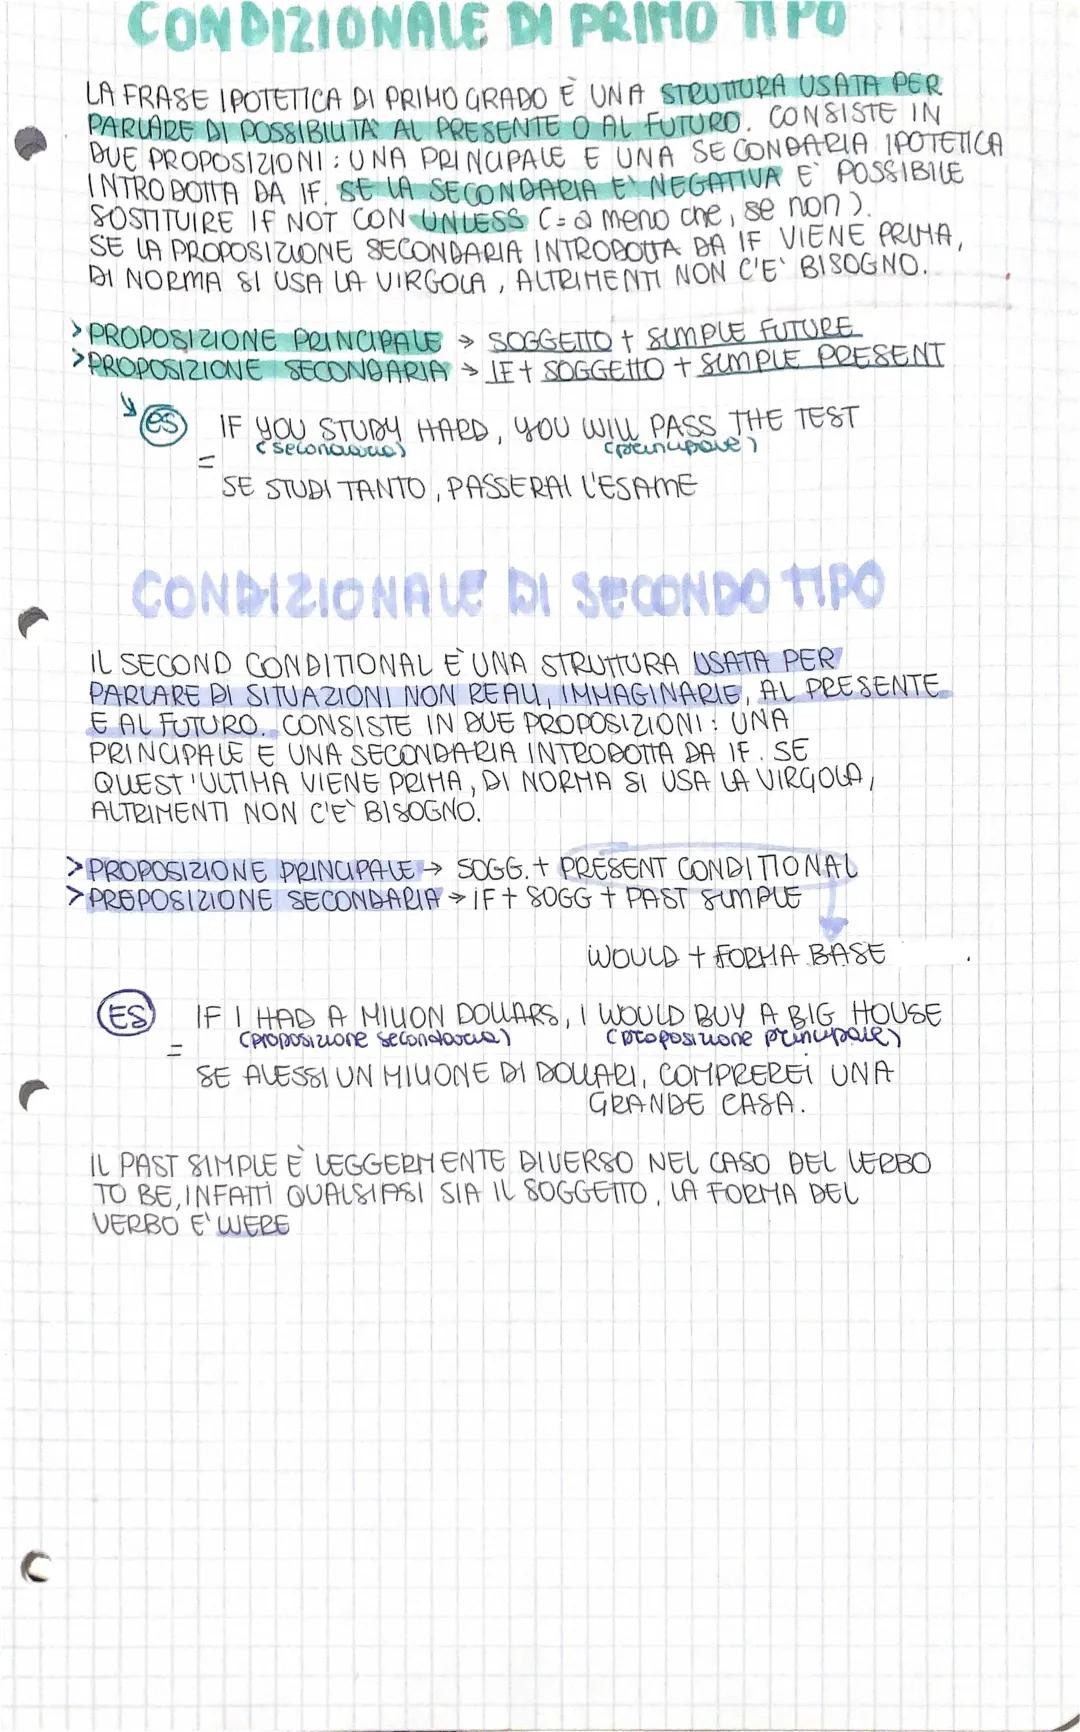 CONDIZIONALE DI PRIMO TIPO
LA FRASE IPOTETICA DI PRIMO GRADO È UNA STRUTTURA USATA PER
PARLARE DI POSSIBILITA' AL PRESENTE O AL FUTURO. CONSISTE IN
DUE PROPOSIZIONI: UNA PRINCIPALE E UNA SECONDARIA IPOTETICA
INTRODOTTA DA IF. SE LA SECONDARIA E' NEGATIVA E' POSSIBILE
SOSTITUIRE IF NOT CON UNLESS (= a meno che, se non).
SE LA PROPOSIZIONE SECONDARIA INTRODOTTA DA IF VIENE PRIMA,
DI NORMA SI USA LA VIRGOLA, ALTRIMENTI NON C'E' BISOGNO.
>PROPOSIZIONE PRINCIPALE → SOGGETTO + SIMPLE FUTURE
>PROPOSIZIONE SECONDARIA → IF + SOGGETTO + SIMPLE PRESENT
↘ ES IF YOU STUDY HARD, YOU WILL PASS THE TEST
(secondaria) (principale)
=
SE STUDI TANTO, PASSERAI L'ESAME
CONDIZIONALE DI SECONDO TIPO
IL SECOND CONDITIONAL E' UNA STRUTTURA USATA PER
PARLARE DI SITUAZIONI NON REALI, IMMAGINARIE, AL PRESENTE
E AL FUTURO. CONSISTE IN DUE PROPOSIZIONI: UNA
PRINCIPALE E UNA SECONDARIA INTRODOTTA DA IF. SE
QUEST'ULTIMA VIENE PRIMA, DI NORMA SI USA LA VIRGOLA,
ALTRIMENTI NON C'E' BISOGNO.
>PROPOSIZIONE PRINCIPALE → SOGG. + PRESENT CONDITIONAL
>PROPOSIZIONE SECONDARIA → IF + SOGG + PAST SIMPLE
WOULD + FORMA BASE
ES IF I HAD A MILION DOLLARS, I WOULD BUY A BIG HOUSE
(proposizione secondaria) (proposizione principale)
=
SE AVESSI UN MILIONE DI DOLLARI, COMPREREI UNA
GRANDE CASA.
IL PAST SIMPLE È LEGGERMENTE DIVERSO NEL CASO DEL VERBO
TO BE, INFATTI QUALSIASI SIA IL SOGGETTO, LA FORMA DEL
VERBO E' WERE